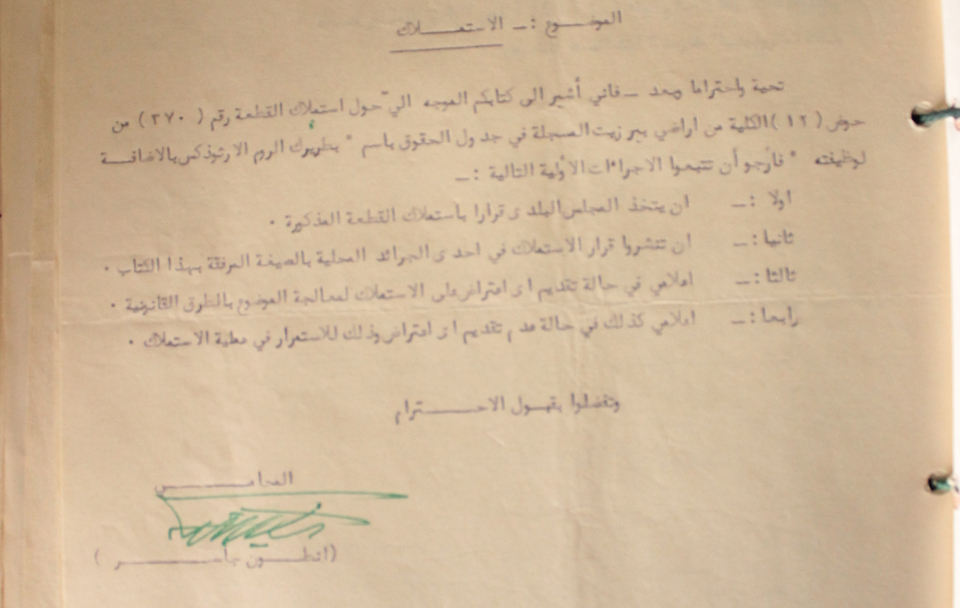 الموضوع :ـ الاستعـــلاك
تحية واحتراما وبعد ـ فاني أشير الى كتابكم الموجه الي حول استملاك القطعة رقم ( ٢٧٠ ) من
حوض ( ١٢ ) الكلية من اراضي بير زيت المسجلة في جدول الحقوق باسم " بطريرك الروم الارثوذكس بالاضافـة
لوظيفته " فأرجو أن تتبعوا الاجراءات الأولية التالية :ـ
اولا :ـ ان يتخذ المجلس البلدى قرارا باستملاك القطعة المذكورة .
ثانيا :ـ ان تنشروا قرار الاستملاك في احدى الجرائد المحلية بالصيغة المرفقة بهذا الكتاب .
ثالثا :ـ اعلامي في حالة تقديم اى اعتراض على الاستملاك لمعالجة الموضوع بالطرق القانونية .
رابعا :ـ اعلامي كذلك في حالة عدم تقديم اى اعتراض وذلك للاستمرار في عملية الاستملاك .
وتفضلوا بقبول الاحـــترام
المحامـــي
(انطـــون جاســـر )